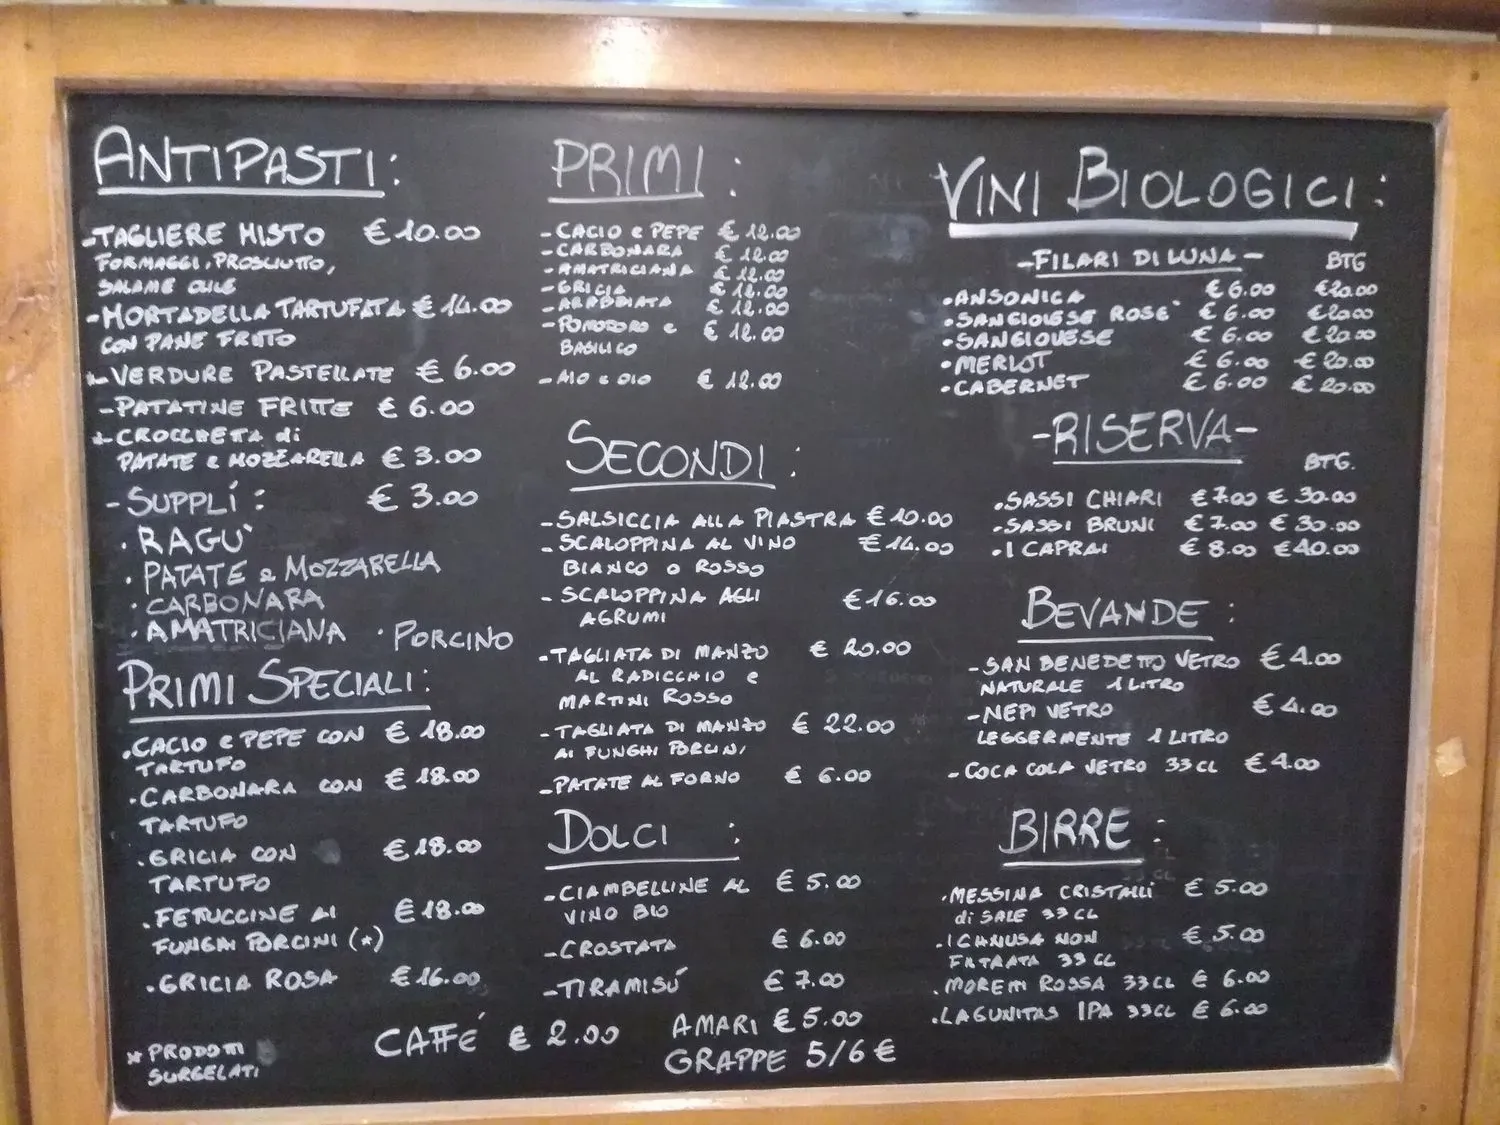 ANTIPASTI:
-TAGLIERE MISTO €10.00
FORMAGGI, PROSCIUTTO,
SALAME OLIVE
-MORTADELLA TARTUFATA €14.00
CON PANE FRITTO
*-VERDURE PASTELLATE €6.00
-PATATINE FRITTE €6.00
*-CROCCHETA di
PATATE e MOZZARELLA €3.00
-SUPPLÍ: €3.00
·RAGU'
·PATATE e MOZZARELLA
·CARBONARA
·AMATRICIANA ·PORCINO
PRIMI SPECIALI:
·CACIO e PEPE CON €18.00
TARTUFO
·CARBONARA CON €18.00
TARTUFO
·GRICIA CON €18.00
TARTUFO
·FETUCCINE AI €18.00
FUNGHI PORCINI (*)
·GRICIA ROSA €16.00
* PRODOTTI
SURGELATI
PRIMI:
-CACIO e PEPE €12.00
-CARBONARA €12.00
-AMATRICIANA €12.00
-GRICIA €12.00
-ARABBIATA €12.00
-POMODORO e €12.00
BASILICO
-AIO e OIO €12.00
SECONDI:
-SALSICCIA ALLA PIASTRA €10.00
-SCALOPPINA AL VINO €14.00
BIANCO O ROSSO
-SCALOPPINA AGLI €16.00
AGRUMI
-TAGLIATA DI MANZO €20.00
AL RADICCHIO e
MARTINI ROSSO
-TAGLIATA DI MANZO €22.00
AI FUNGHI PORCINI
-PATATE AL FORNO €6.00
DOLCI:
-CIAMBELLINE AL €5.00
VINO BIO
-CROSTATA €6.00
-TIRAMISÚ €7.00
CAFFE' €2.00
AMARI €5.00
GRAPPE 5/6€
VINI BIOLOGICI:
-FILARI DI LUNA- BTG
·ANSONICA €6.00 €20.00
·SANGIOIESE ROSE' €6.00 €20.00
·SANGIOVESE €6.00 €20.00
·MERLOT €6.00 €20.00
·CABERNET €6.00 €20.00
-RISERVA-
BTG.
·SASSI CHIARI €7.00 €30.00
·SASSI BRUNI €7.00 €30.00
·I CAPRAI €8.00 €40.00
BEVANDE:
-SAN BENEDETTO VETRO €4.00
NATURALE 1 LITRO
-NEPI VETRO €4.00
LEGGERMENTE 1 LITRO
-COCA COLA VETRO 33CL €4.00
BIRRE:
·MESSINA CRISTALLI €5.00
di SALE 33CL
·ICHNUSA NON €5.00
FILTRATA 33CL
·MORETTI ROSSA 33CL €6.00
·LAGUNITAS IPA 33CL €6.00